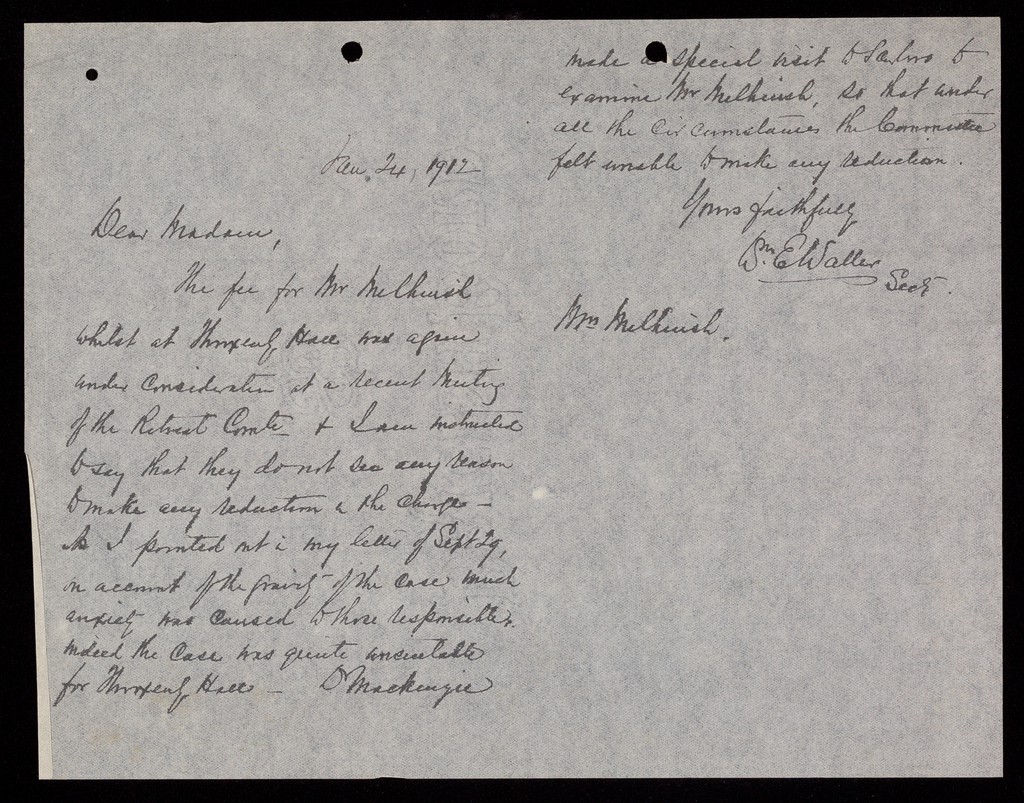 Jan. 24, 1912
Dear Madam,
The fee for Mr Melhuish
whilst at Throxenby Hall was again
under consideration at a recent Meeting
of the Retreat Comte & I am instructed
to say that they do not see any reason
to make any reduction in the charge –
As I pointed out in my letter of Sept 29,
on account of the gravity of the case much
anxiety was caused to those responsible,
indeed the case was quite unsuitable
for Throxenby Hall – Dr Mackenzie
made a special visit to Scarbro to
examine Mr Melhuish, so that under
all the circumstances the Committee
felt unable to make any reduction.
Yours faithfully
Wm. E Waller
Secy.
Mrs Melhuish.